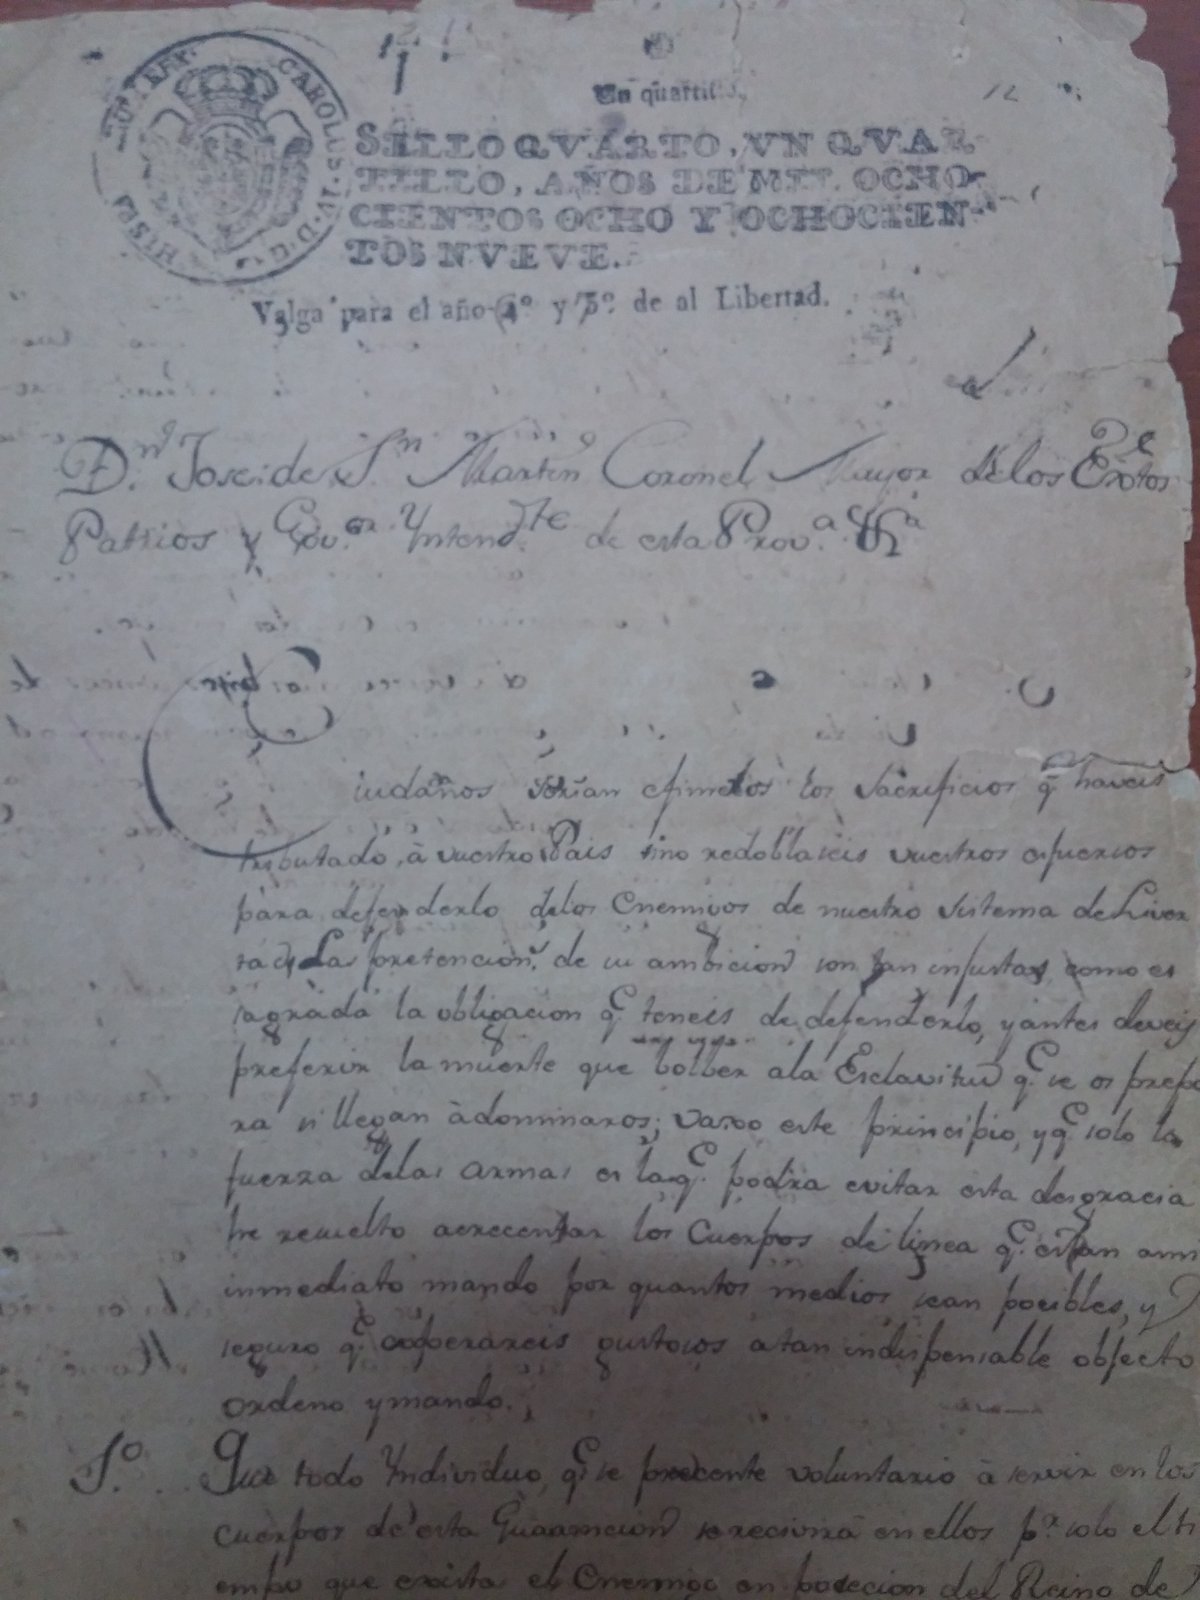 HISP. ET IND. R. CAROLUS. IV. D. G.
Un quartillo.
12
SELLO QVARTO, VN QVAR-
TILLO, AÑOS DE MIL OCHO-
CIENTOS OCHO Y OCHOCIEN-
TOS NVEVE.
Valga para el año 4º y 5º de al Libertad.
Dn. Jose de Sn Martin Coronel Mayor delos Exctos
Patrios y Govor. Yntendte de esta Prova. &a
Ciudaños serian efimeros los sacrificios q. haveis
tributado, à vuestro Pais sino redoblaseis vuestros esfuersos
para defenderlo delos Enemigos de nuestro sistema de Liver
tad, Las pretencions. de su ambicion son tan injustas, como es
sagrada la obligacion q. teneis de defenderlo, y antes deveis
preferir la muerte que bolber ala Esclavitud q. se os prepa
ra si llegan à dominaros; vaxo este principio, y q. solo la
fuerza delas armas es la q. podra evitar esta desgracia
he resuelto acrecentar los Cuerpos de linea q. estan a mi
inmediato mando por quantos medios sean pocibles, y
seguro q. cooperareis gustosos a tan indispensable objecto
ordeno y mando.
1º. Que todo Yndividuo, q. se precente voluntario à servir en los
cuerpos de esta Guarnicion se recivira en ellos pr. solo el ti
empo que exista el Enemigo en pocecion del Reino de